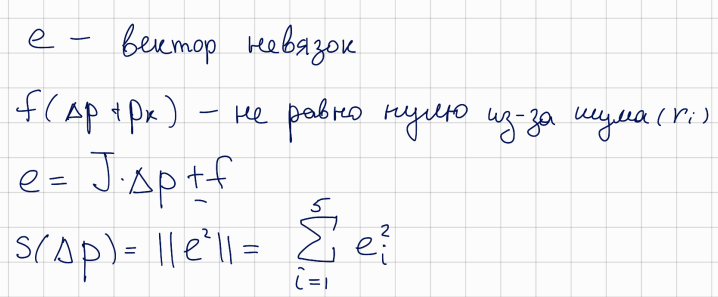 e – вектор невязок
f(Δp + pк) – не равно нулю из-за шума (rᵢ)
e = J·Δp + f
S(Δp) = ||e²|| = ∑ᵢ₌₁⁵ eᵢ²